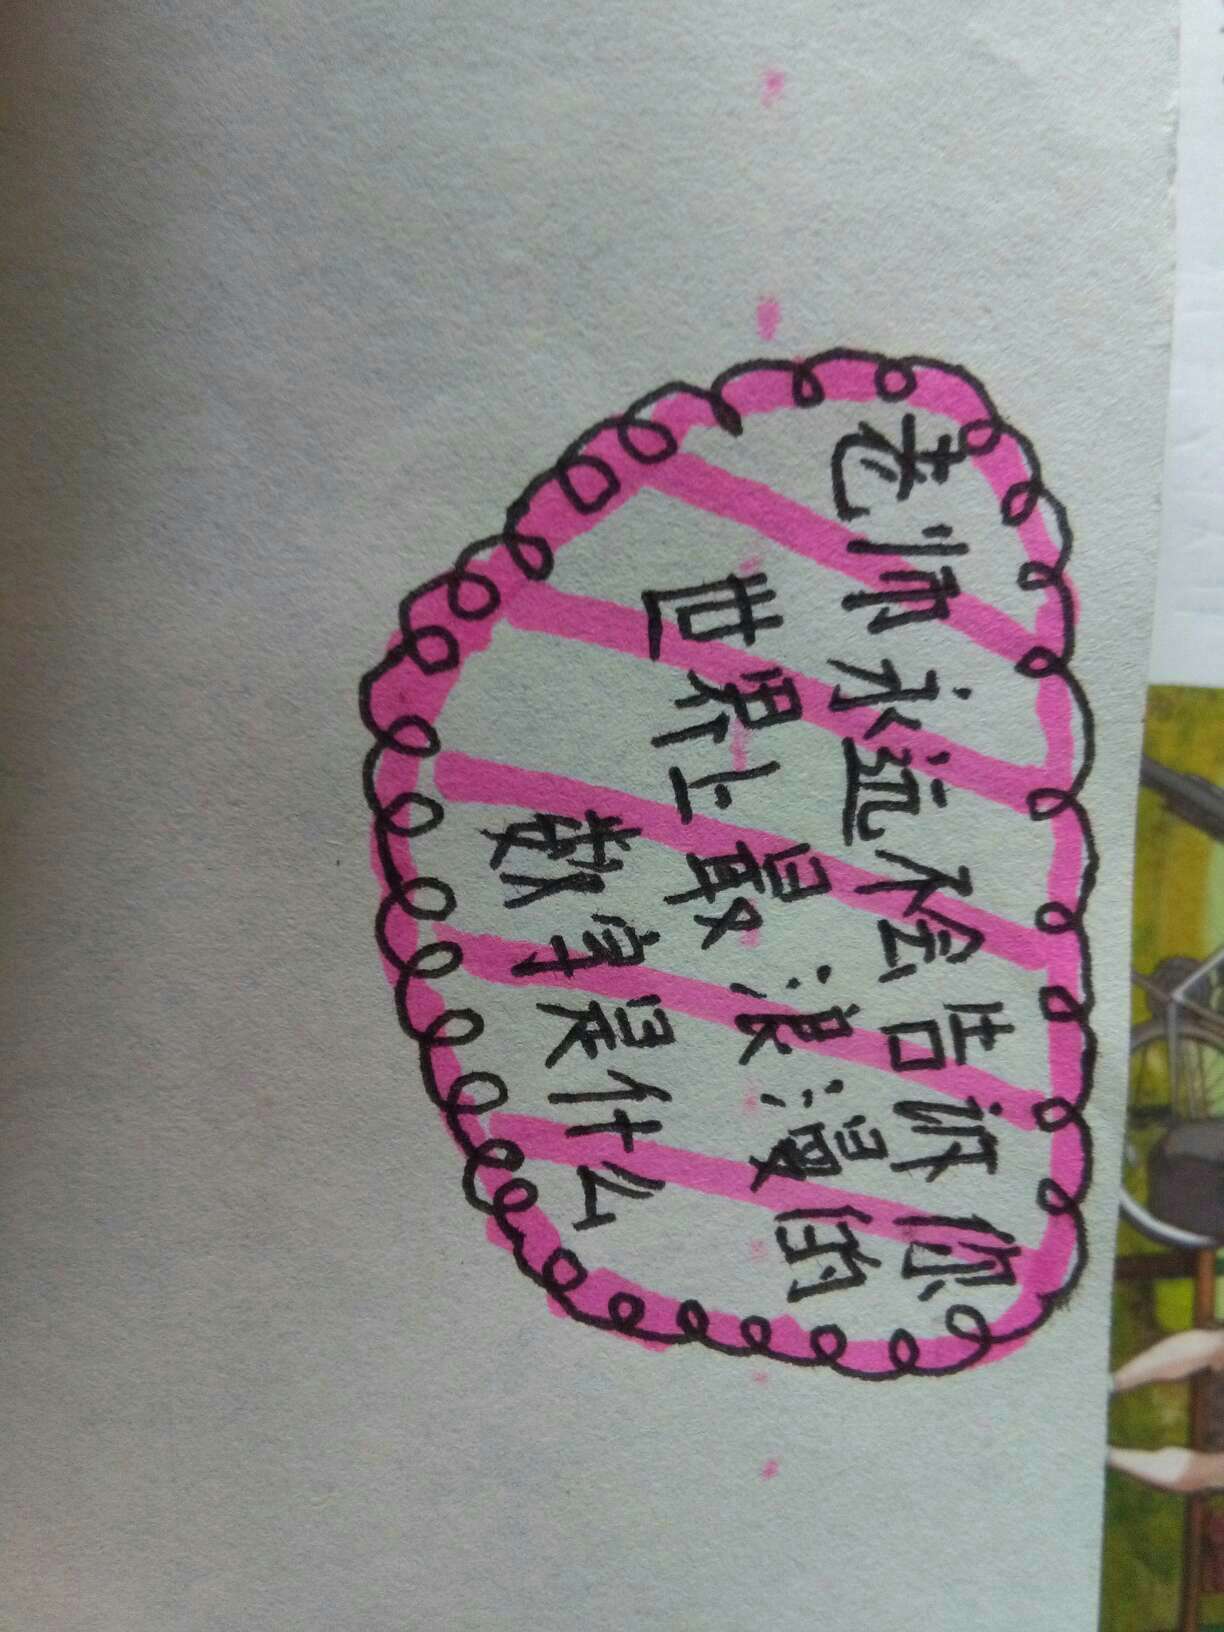 老师永远不会告诉你
世界上最浪漫的
数字是什么